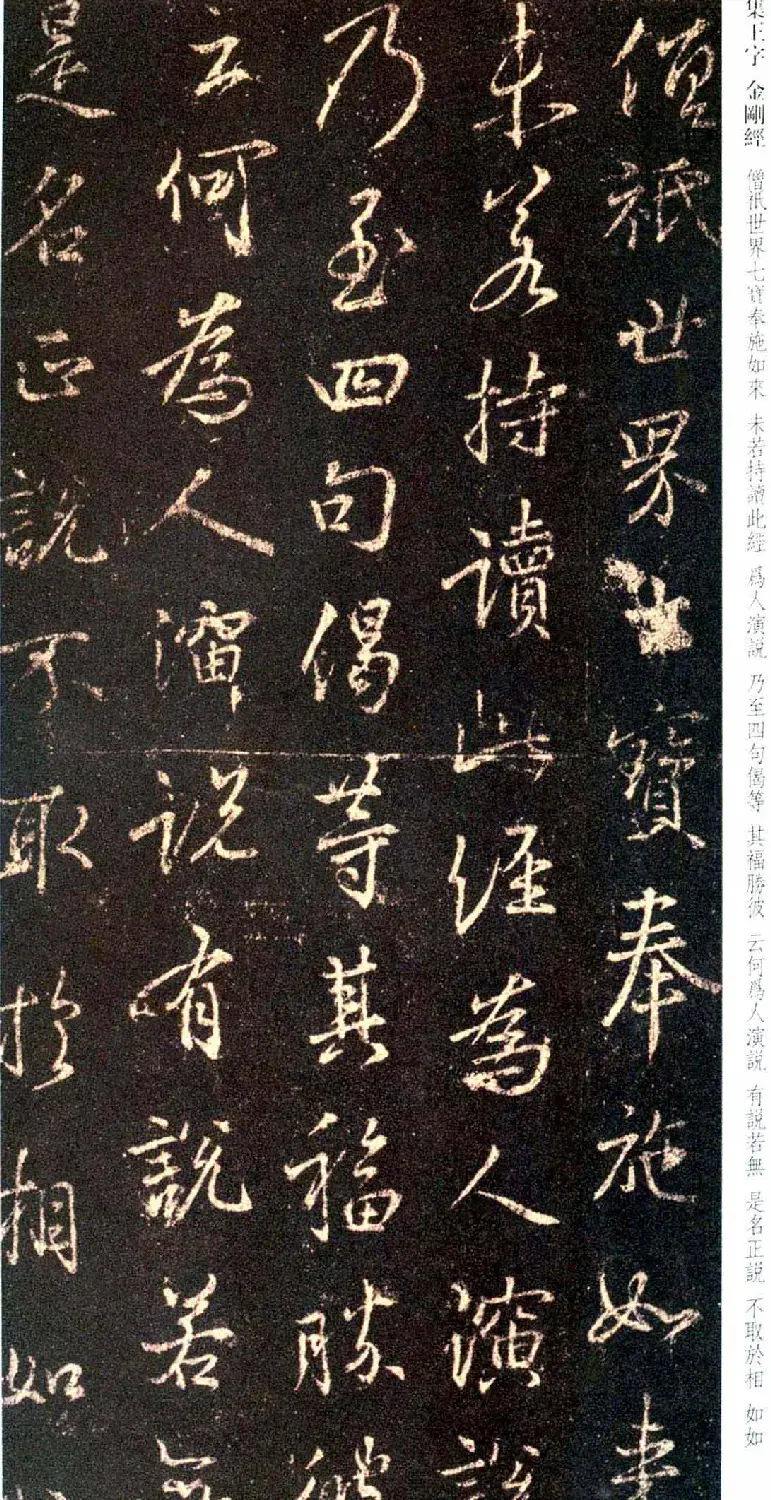 集王字 金剛經 僧祇世界七寶奉施如來 未若持讀此經 爲人演說 乃至四句偈等 其福勝彼 云何爲人演說 有說若無 是名正說 不取於相 如如
僧祇世界七寶奉施如来
未若持讀此經為人演說
乃至四句偈等其福勝彼
云何為人演說有說若無
是名正說不取於相如